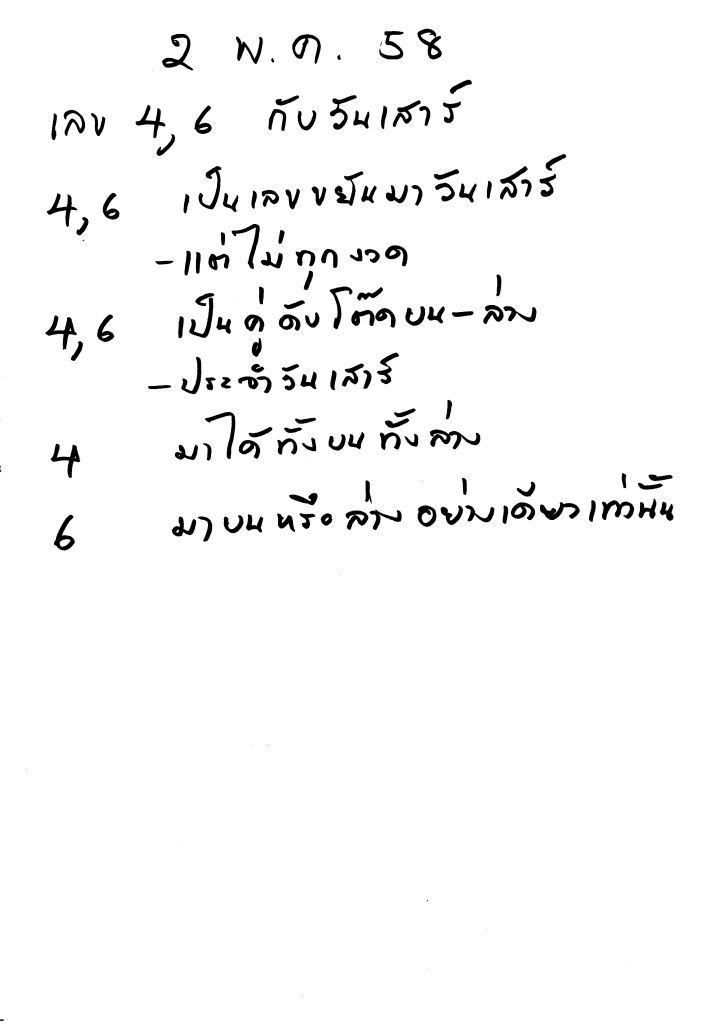 2 พ.ค. 58
เลข 4,6 กับวันเสาร์
4,6 เป็นเลขขยันมาวันเสาร์
-แต่ไม่ทุกงวด
4,6 เป็นคู่ดับโต๊ดบน-ล่าง
-ประจำวันเสาร์
4 มาได้ทั้งบนทั้งล่าง
6 มาบนหรือล่างอย่างเดียวเท่านั้น